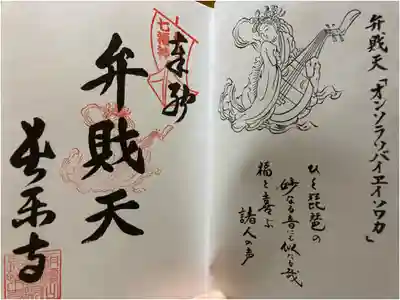 弁財天「オンソラソバイヱイソワカ」
ひく琵琶の
妙なる音にも似たる哉
福と喜ぶ
諸人の声
七福神
奉拝
弁財天
長楽寺